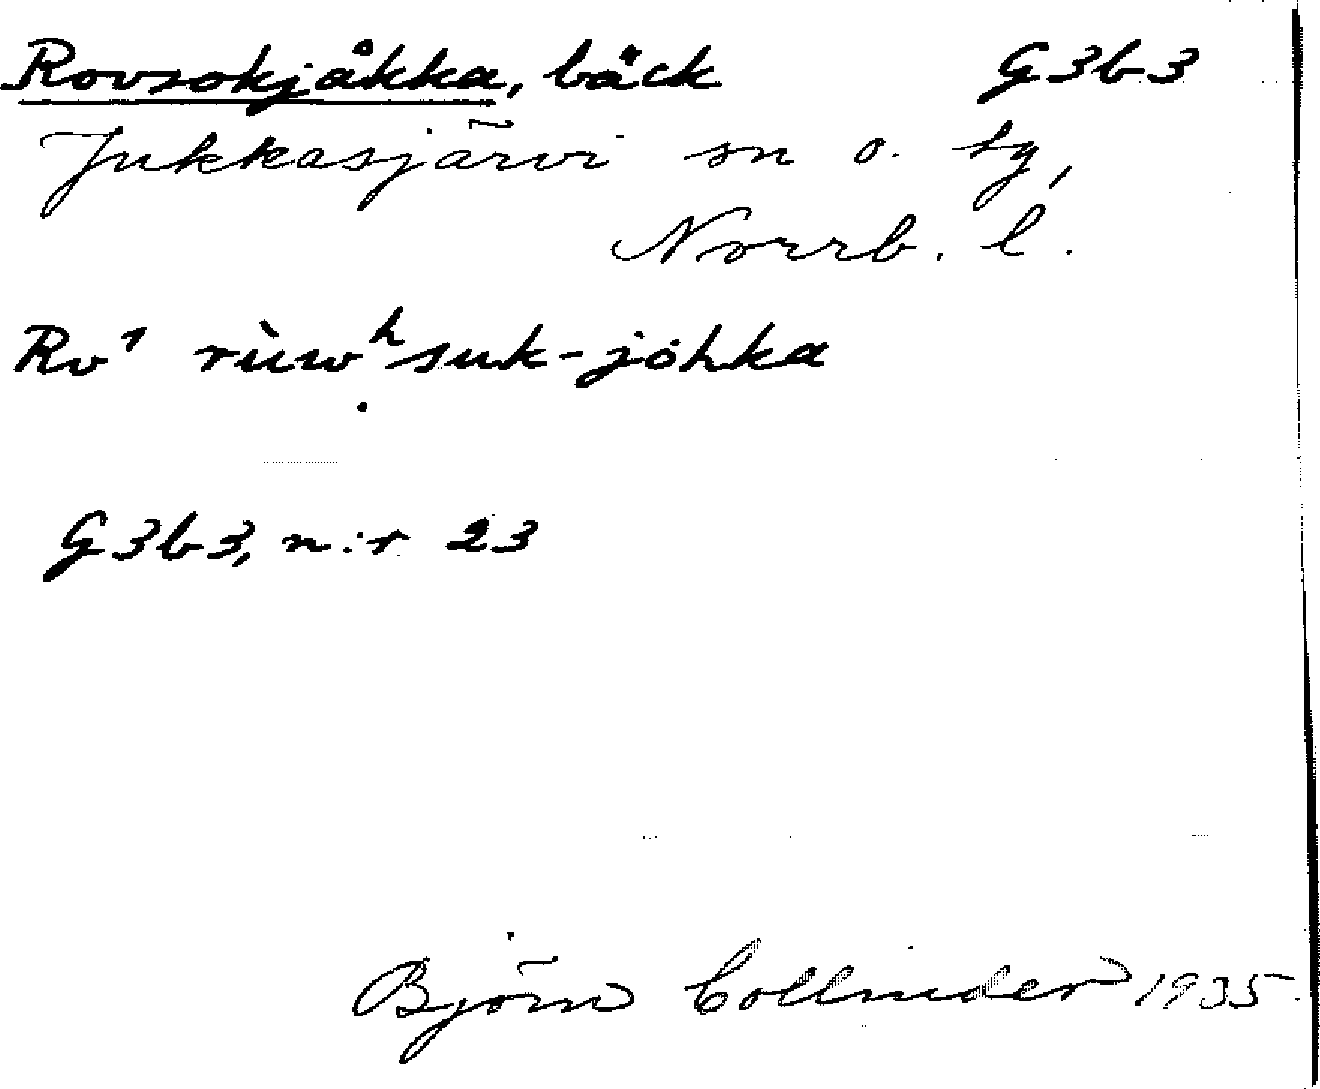 Rovsokjåkka, bäck G3b3
Jukkasjärvi sn o. tg,
Norrb. l.
Rv¹ rùwʰsuk-johka
G3b3, n:r 23
Björn Collinder 1935.